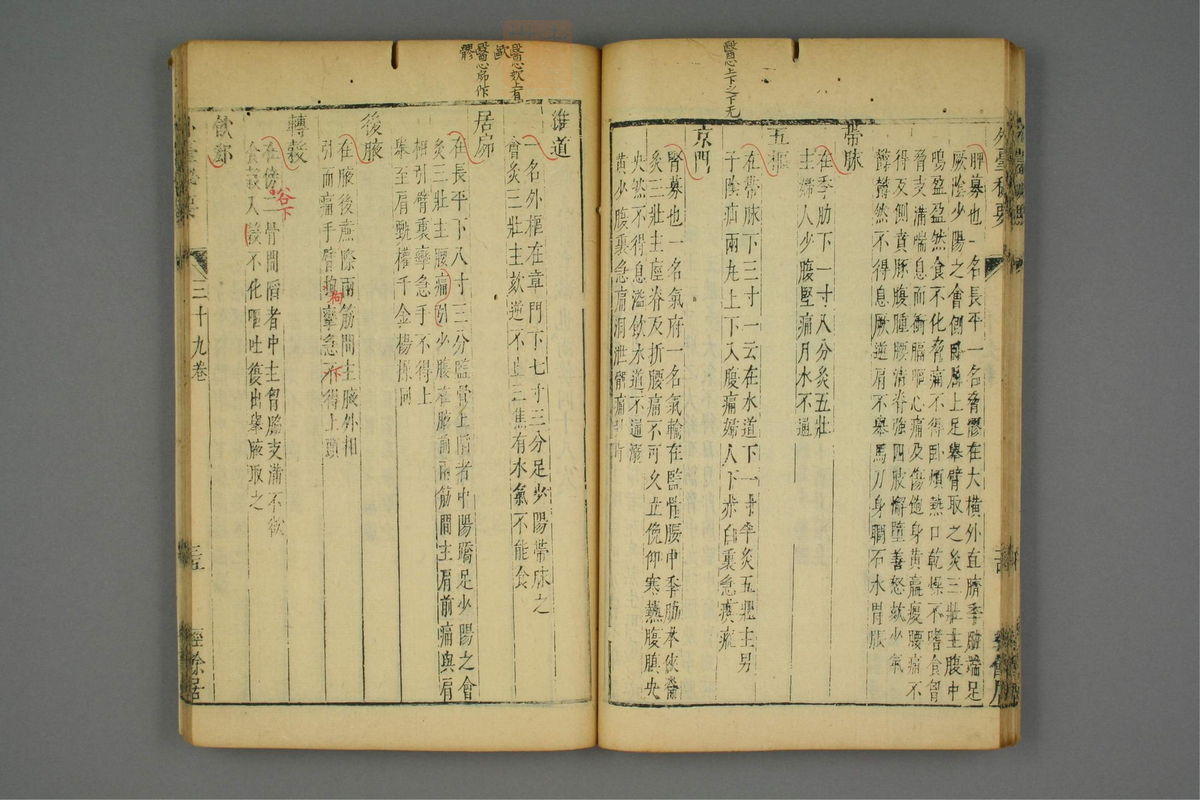 醫心上下之下无
外臺秘要
脾募也一名長平一名脅髎在大橫外直臍季肋端足
厥陰少陽之會側臥屈上足舉臂取之灸三壯主腹中
腸盈盈然食不化脅痛不得臥煩熱口乾燥不嗜食胷
脅支滿喘息而衝膈嘔心痛及傷飽身黃羸瘦腰痛不
得反側賁豚腹腫腰清脊強四肢懈墮善怒欬少氣
鬱鬱然不得息厥逆肩不舉馬刀身瞤石水胃脹
帶脉
在季肋下一寸八分灸五壯
主婦人少腹堅痛月水不通
五樞
在帶脉下三寸一云在水道下一寸半灸五壯主男
子陰疝兩丸上下入腹痛婦人下赤白裏急瘈瘲
京門
腎募也一名氣府一名氣輸在監骨腰中季肋本俠脊
灸三壯主痓脊反折腰痛不可久立俛仰寒熱腹䐜央
央然不得息溢飲水道不通溺
黃少腹裏急痛洞泄髀痛
醫心欬上有
歐
醫心䏚作
髎
維道
一名外樞在章門下七寸三分足少陽帶脉之
會灸三壯主欬逆不止三焦有水氣不能食
居髎
在長平下八寸三分監骨上陷者中陽蹻足少陽之會
灸三壯主腰痛引少腹在腋詣兩筋間主肩前痛與肩
相引臂裏攣急手不得上
舉至肩甄權千金楊操同
後腋
在腋後亷際兩筋間主腋外相
引而痛手臂拘攣急不得上頭
拘
轉穀
在傍二骨間陷者中主胷脇支滿不欲
食穀入穀不化嘔吐復出舉腋取之
谷下
飲郄
三十九卷
三五
經餘居